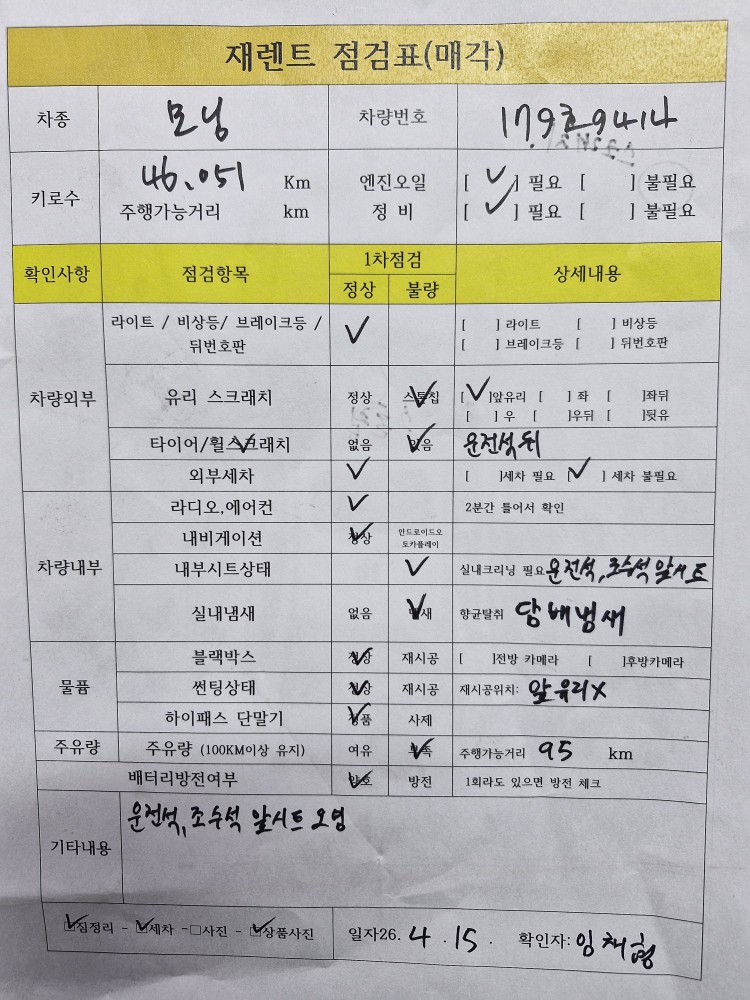 재렌트 점검표(매각)
차종 모닝 차량번호 179호9414
키로수 46,051 Km 엔진오일 [ ✓ ] 필요 [ ] 불필요
주행가능거리 km 정 비 [ ✓ ] 필요 [ ] 불필요
확인사항 점검항목 1차점검 상세내용
정상 불량
차량외부
라이트 / 비상등/ 브레이크등 / ✓ [ ] 라이트 [ ] 비상등
뒤번호판 [ ] 브레이크등 [ ] 뒤번호판
유리 스크래치 정상 스톤칩 ✓ [ ✓ ]앞유리 [ ] 좌 [ ]좌뒤
[ ] 우 [ ]우뒤 [ ]뒷유
타이어/휠스크래치 ✓ 없음 있음 ✓ 운전석 뒤
외부세차 ✓ [ ]세차 필요 [ ✓ ] 세차 불필요
차량내부
라디오,에어컨 ✓ 2분간 틀어서 확인
내비게이션 정상 ✓ 안드로이드오
토카플레이
내부시트상태 ✓ 실내크리닝 필요 운전석, 조수석 앞시트
실내냄새 없음 냄새 ✓ 향균탈취 담배냄새
물품
블랙박스 정상 ✓ 재시공 [ ]전방 카메라 [ ]후방카메라
썬팅상태 정상 ✓ 재시공 재시공위치: 앞유리X
하이패스 단말기 정품 ✓ 사제
주유량 주유량 (100KM이상 유지) 여유 부족 ✓ 주행가능거리 95 km
배터리방전여부 양호 ✓ 방전 1회라도 있으면 방전 체크
기타내용 운전석, 조수석 앞시트 오염
☑짐정리 - ☑세차 -☐사진 - ☑상품사진 일자26. 4 . 15 . 확인자: 임채형